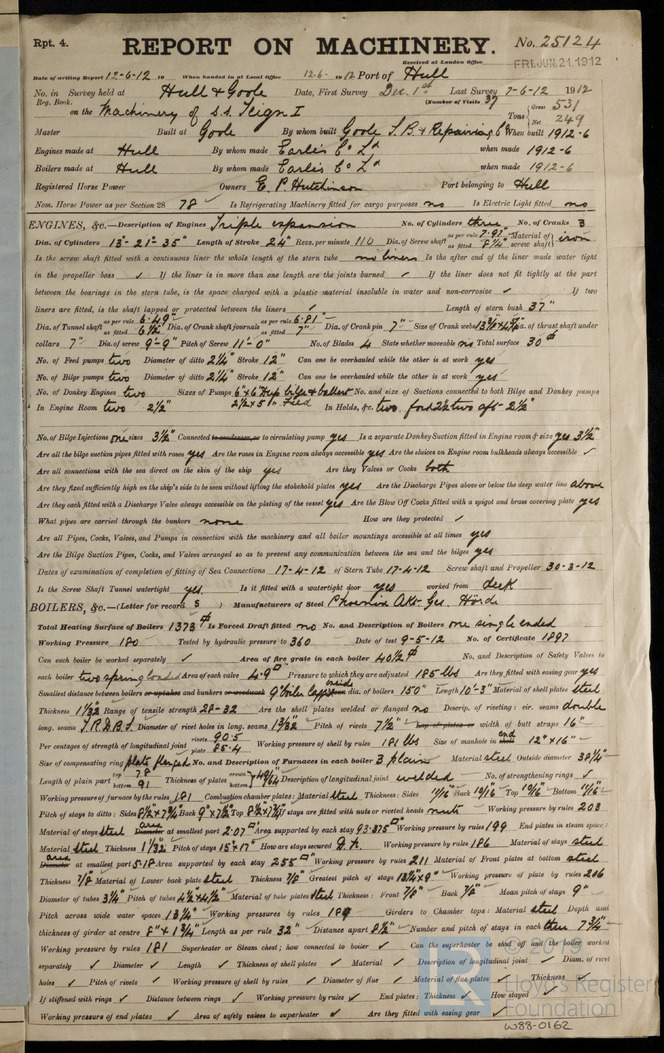 Rpt. 4.
REPORT ON MACHINERY.
No. 25124
Received at London Office
FRI. JUN. 21. 1912
Date of writing Report 12-6-12 19 When handed in at Local Office 12.6. 1912 Port of Hull
No. in Survey held at Hull & Goole Date, First Survey Dec. 1st Last Survey 7-6-12 1912
Reg. Book. (Number of Visits 37
on the Machinery of s.s. Teign I Tons Gross 531 Net 249
Master Built at Goole By whom built Goole S.B & Repairing Co When built 1912-6
Engines made at Hull By whom made Earle's Co Ld when made 1912-6
Boilers made at Hull By whom made Earle's Co Ld when made 1912-6
Registered Horse Power Owners E. P. Hutchinson Port belonging to Hull
Nom. Horse Power as per Section 28 78 Is Refrigerating Machinery fitted for cargo purposes no Is Electric Light fitted no
ENGINES, &c.—Description of Engines Triple expansion No. of Cylinders three No. of Cranks 3
Dia. of Cylinders 13"-21"-35" Length of Stroke 24" Revs. per minute 110 Dia. of Screw shaft as per rule 7.97" as fitted 8 1/4" Material of screw shaft iron
Is the screw shaft fitted with a continuous liner the whole length of the stern tube no liners Is the after end of the liner made water tight
in the propeller boss ✓ If the liner is in more than one length are the joints burned ✓ If the liner does not fit tightly at the part
between the bearings in the stern tube, is the space charged with a plastic material insoluble in water and non-corrosive ✓ If two
liners are fitted, is the shaft lapped or protected between the liners ✓ Length of stern bush 37"
Dia. of Tunnel shaft as per rule 6.49" as fitted 6 1/2" Dia. of Crank shaft journals as per rule 6.81" as fitted 7" Dia. of Crank pin 7" Size of Crank webs Dia. of thrust shaft under
collars 7" Dia. of screw 9'-9" Pitch of Screw 11'-0" No. of Blades 4 State whether moveable no Total surface 30
No. of Feed pumps two Diameter of ditto 2 1/4" Stroke 12" Can one be overhauled while the other is at work yes
No. of Bilge pumps two Diameter of ditto 2 1/4" Stroke 12" Can one be overhauled while the other is at work yes
No. of Donkey Engines two Sizes of Pumps No. and size of Suctions connected to both Bilge and Donkey pumps
In Engine Room two 2 1/2" In Holds, &c. two two aft 2 1/2"
No. of Bilge Injections one sizes 3 1/2" Connected to condenser, or to circulating pump yes Is a separate Donkey Suction fitted in Engine room & size yes 3 1/2"
Are all the bilge suction pipes fitted with roses yes Are the roses in Engine room always accessible yes Are the sluices on Engine room bulkheads always accessible ✓
Are all connections with the sea direct on the skin of the ship yes Are they Valves or Cocks both
Are they fixed sufficiently high on the ship's side to be seen without lifting the stokehold plates yes Are the Discharge Pipes above or below the deep water line above
Are they each fitted with a Discharge Valve always accessible on the plating of the vessel yes Are the Blow Off Cocks fitted with a spigot and brass covering plate yes
What pipes are carried through the bunkers none How are they protected ✓
Are all Pipes, Cocks, Valves, and Pumps in connection with the machinery and all boiler mountings accessible at all times yes
Are the Bilge Suction Pipes, Cocks, and Valves arranged so as to prevent any communication between the sea and the bilges yes
Dates of examination of completion of fitting of Sea Connections 17-4-12 of Stern Tube 17-4-12 Screw shaft and Propeller 30-3-12
Is the Screw Shaft Tunnel watertight yes Is it fitted with a watertight door yes worked from deck
BOILERS, &c.—(Letter for record S ) Manufacturers of Steel Phoenix Akt. Ges. Hörde
Total Heating Surface of Boilers 1373 Is Forced Draft fitted no No. and Description of Boilers one single ended
Working Pressure 180 Tested by hydraulic pressure to 360 Date of test 9-5-12 No. of Certificate 1897
Can each boiler be worked separately ✓ Area of fire grate in each boiler 40 1/2 No. and Description of Safety Valves to
each boiler two spring loaded Area of each valve 4.9 Pressure to which they are adjusted 185 lbs Are they fitted with easing gear yes
Smallest distance between boilers or uptakes and bunkers or woodwork 9" inside dia. of boilers 150" Length 10'-3" Material of shell plates steel
Thickness 1 1/32 Range of tensile strength 28-32 Are the shell plates welded or flanged no Descrip. of riveting: cir. seams double
long. seams T.R.D.B.S. Diameter of rivet holes in long. seams 1 3/32 Pitch of rivets 7 1/2" Lap of plates or width of butt straps 16"
Per centages of strength of longitudinal joint rivets 90.5 plate 85.4 Working pressure of shell by rules 181 lbs Size of manhole in end shell 12" x 16"
Size of compensating ring plate flanged No. and Description of Furnaces in each boiler 3 plain Material steel Outside diameter 38 1/4"
Length of plain part top 78 bottom 91 Thickness of plates crown bottom 49/64 Description of longitudinal joint welded No. of strengthening rings ✓
Working pressure of furnace by the rules 181 Combustion chamber plates: Material steel Thickness: Sides 11/16" Back 10/16" Top 10/16" Bottom 11/16"
Pitch of stays to ditto: Sides 8 1/2" x 7 3/4" Back 9" x 7 1/2" Top 8 1/2" x 7 3/4" If stays are fitted with nuts or riveted heads nuts Working pressure by rules 203
Material of stays steel Diameter area at smallest part 2.07 Area supported by each stay 93.375 Working pressure by rules 199 End plates in steam space:
Material steel Thickness 1 1/32 Pitch of stays 15" x 17" How are stays secured Working pressure by rules 186 Material of stays steel
Diameter area at smallest part 5.18 Area supported by each stay 255 Working pressure by rules 211 Material of Front plates at bottom steel
Thickness 7/8" Material of Lower back plate steel Thickness 7/8" Greatest pitch of stays 13 1/4" x 9" Working pressure of plate by rules 206
Diameter of tubes 3 1/4" Pitch of tubes 4 1/2" x 4 1/2" Material of tube plates steel Thickness: Front 7/8" Back 7/8" Mean pitch of stays 9"
Pitch across wide water spaces 13 1/4" Working pressures by rules 189 Girders to Chamber tops: Material steel Depth and
thickness of girder at centre 8" x 1 3/4" Length as per rule 32" Distance apart 8 1/2" Number and pitch of stays in each three 7 3/4"
Working pressure by rules 181 Superheater or Steam chest; how connected to boiler ✓ Can the superheater be shut off and the boiler worked
separately ✓ Diameter ✓ Length ✓ Thickness of shell plates ✓ Material ✓ Description of longitudinal joint ✓ Diam. of rivet
holes ✓ Pitch of rivets ✓ Working pressure of shell by rules ✓ Diameter of flue ✓ Material of flue plates ✓ Thickness ✓
If stiffened with rings ✓ Distance between rings ✓ Working pressure by rules ✓ End plates: Thickness ✓ How stayed ✓
Working pressure of end plates ✓ Area of safety valves to superheater ✓ Are they fitted with easing gear ✓
© 2019
Lloyd's Register
Foundation
W88-0162